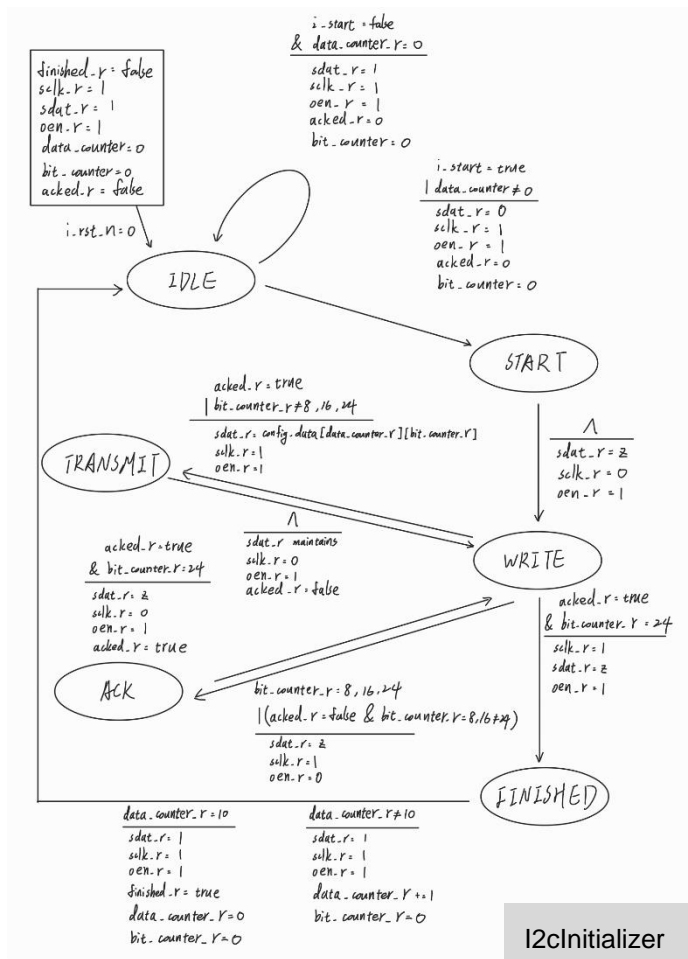 i_start = false
& data_counter_r = 0
sdat_r = 1
sclk_r = 1
oen_r = 1
acked_r = 0
bit_counter = 0
finished_r = false
sclk_r = 1
sdat_r = 1
oen_r = 1
data_counter = 0
bit_counter = 0
acked_r = false
i_rst_n = 0
i_start = true
| data_counter ≠ 0
sdat_r = 0
sclk_r = 1
oen_r = 1
acked_r = 0
bit_counter = 0
IDLE
START
acked_r = true
| bit_counter_r ≠ 8, 16, 24
sdat_r = config_data[data_counter_r][bit_counter_r]
sclk_r = 1
oen_r = 1
TRANSMIT
Λ
sdat_r = z
sclk_r = 0
oen_r = 1
Λ
sdat_r maintains
sclk_r = 0
oen_r = 1
acked_r = false
WRITE
acked_r = true
& bit_counter_r = 24
sdat_r = z
sclk_r = 0
oen_r = 1
acked_r = true
acked_r = true
& bit_counter_r = 24
sclk_r = 1
sdat_r = z
oen_r = 1
ACK
bit_counter_r = 8, 16, 24
| (acked_r = false & bit_counter_r = 8, 16 ≠ 24)
sdat_r = z
sclk_r = 1
oen_r = 0
FINISHED
data_counter_r = 10
sdat_r = 1
sclk_r = 1
oen_r = 1
finished_r = true
data_counter_r = 0
bit_counter_r = 0
data_counter_r ≠ 10
sdat_r = 1
sclk_r = 1
oen_r = 1
data_counter_r += 1
bit_counter_r = 0
I2cInitializer